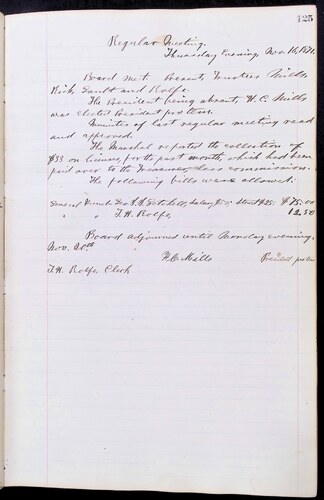 125
Regular Meeting,
Thursday Evening, Nov. 16, 1871.
Board met. Present, Trustees Mills,
Rich, Gault and Rolfe.
The President being absent, H. C. Mills
was elected President pro tem.
Minutes of last regular meeting read
and approved.
The Marshal reported the collection of
$33 on licenses, for the past month, which had been
paid over to the Treasurer, less commission.
The following bills were allowed:
General Fund. Geo. A. Getchell, Salary $50. Street $25. $75.00
" " I. H. Rolfe, 12.50
Board adjourned until Monday evening,
Nov. 20th
H. C. Mills President pro tem
I. H. Rolfe, Clerk